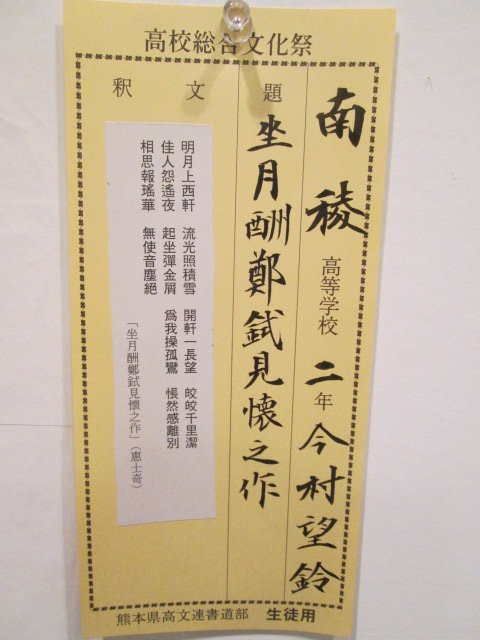 高校総合文化祭
南稜高等学校 二年 今村望鈴
題 坐月酬鄭鉽見懷之作
釈文
明月上西軒 流光照積雪 開軒一長望 皎皎千里潔
佳人怨遙夜 起坐彈金屑 爲我操孤鸞 悵然感離別
相思報瑤華 無使音塵絕
「坐月酬鄭鉽見懷之作」(惠士奇)
熊本県高文連書道部 生徒用